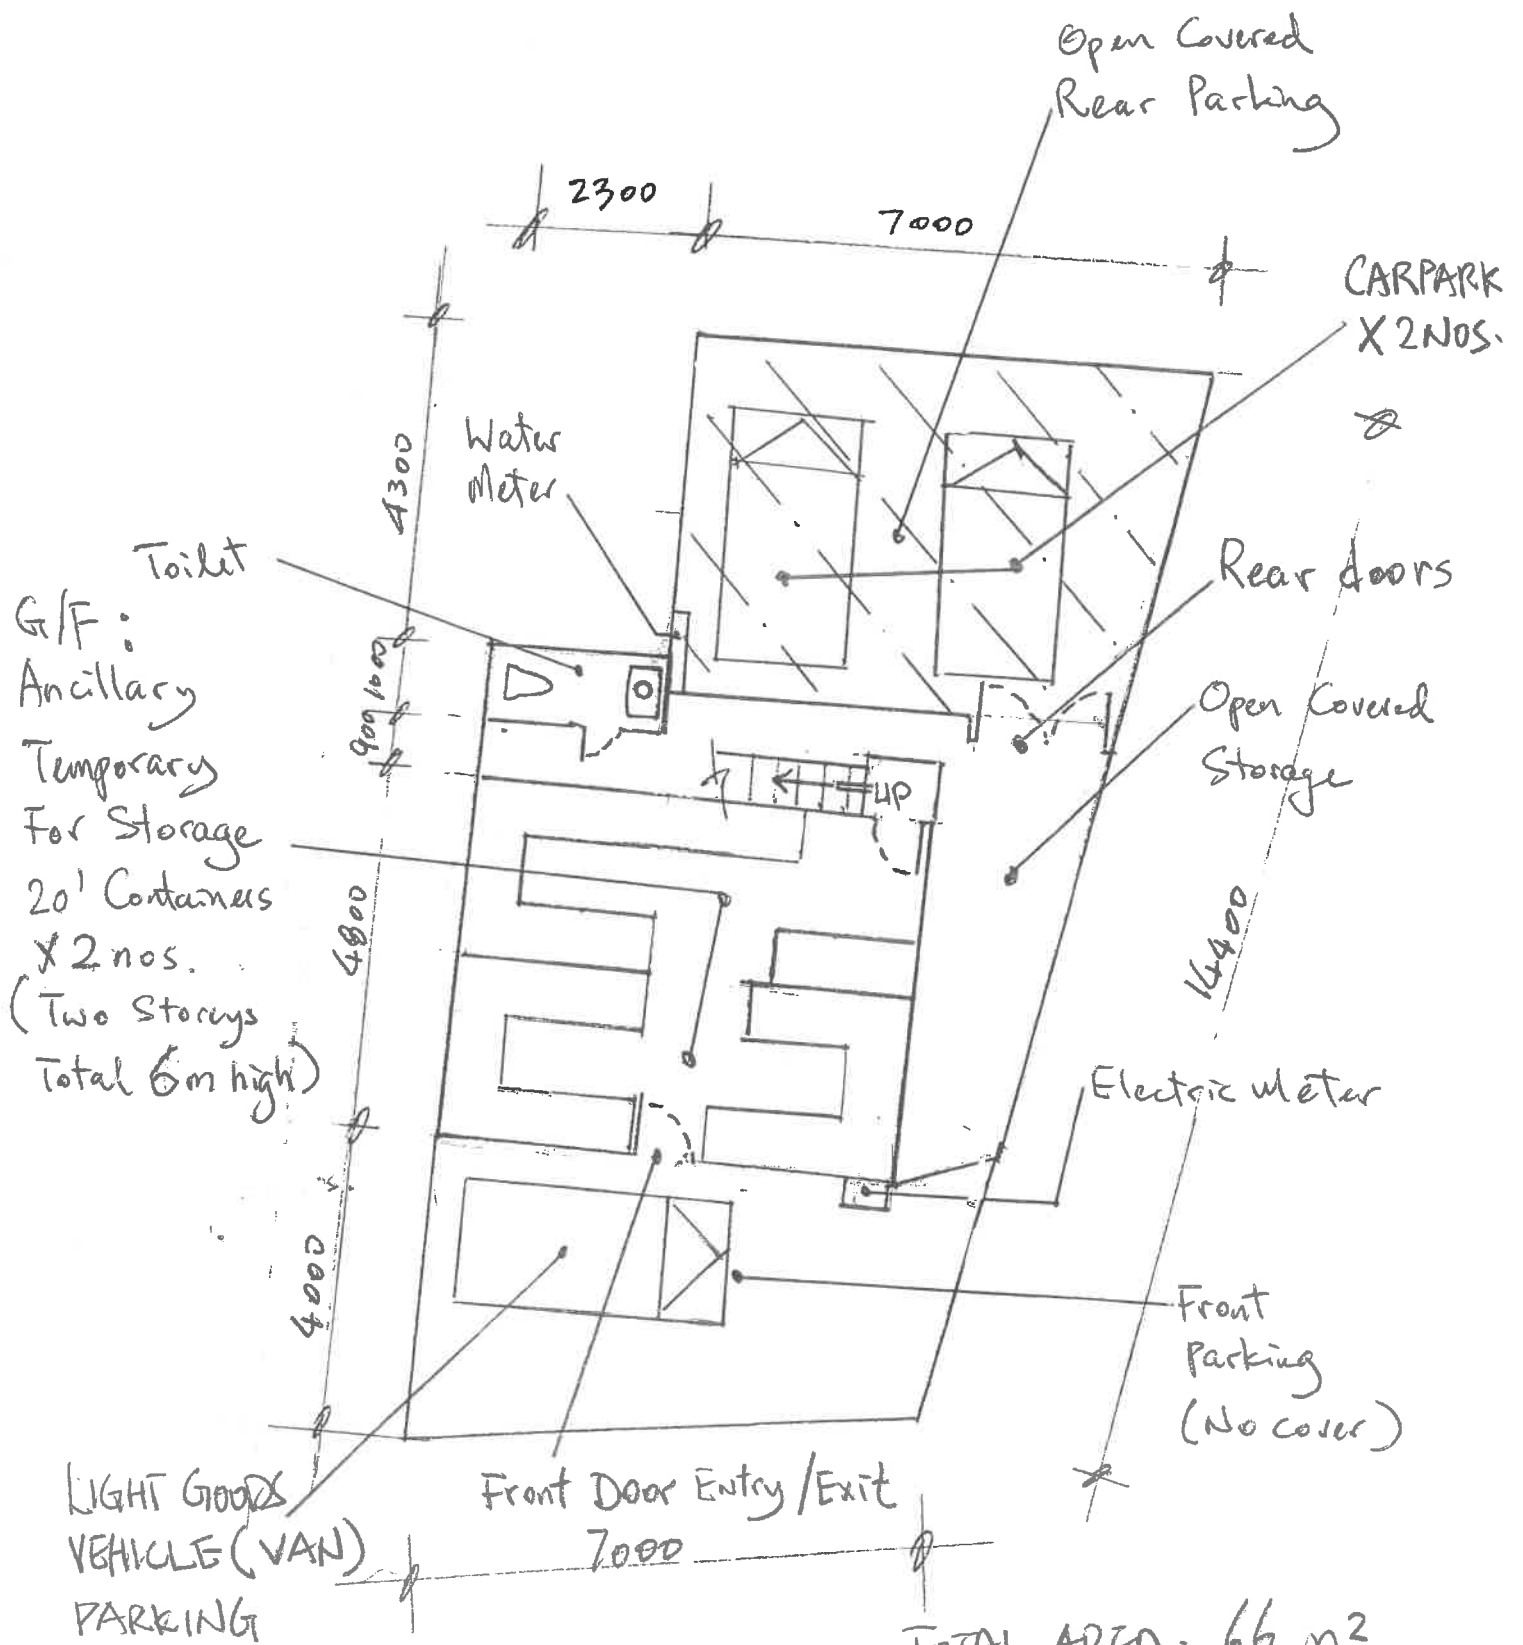 Open Covered
Rear Parking
2300
7000
CARPARK
X 2NOS.
Water
Meter
4300
Toilet
Rear doors
G/F :
Ancillary
Temporary
For Storage
20' Containers
X 2 nos.
(Two Storeys
Total 6m high)
1000
900
Open Covered
Storage
UP
4800
14400
Electric Meter
4000
Front
Parking
(No cover)
LIGHT GOODS
VEHICLE (VAN)
PARKING
Front Door Entry/Exit
7000
TOTAL AREA: 66 m2